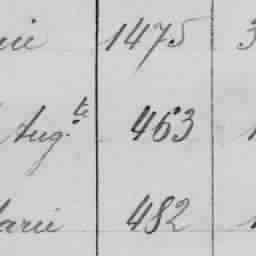 rie 1475 3
Aug.te 463 1
arie 482